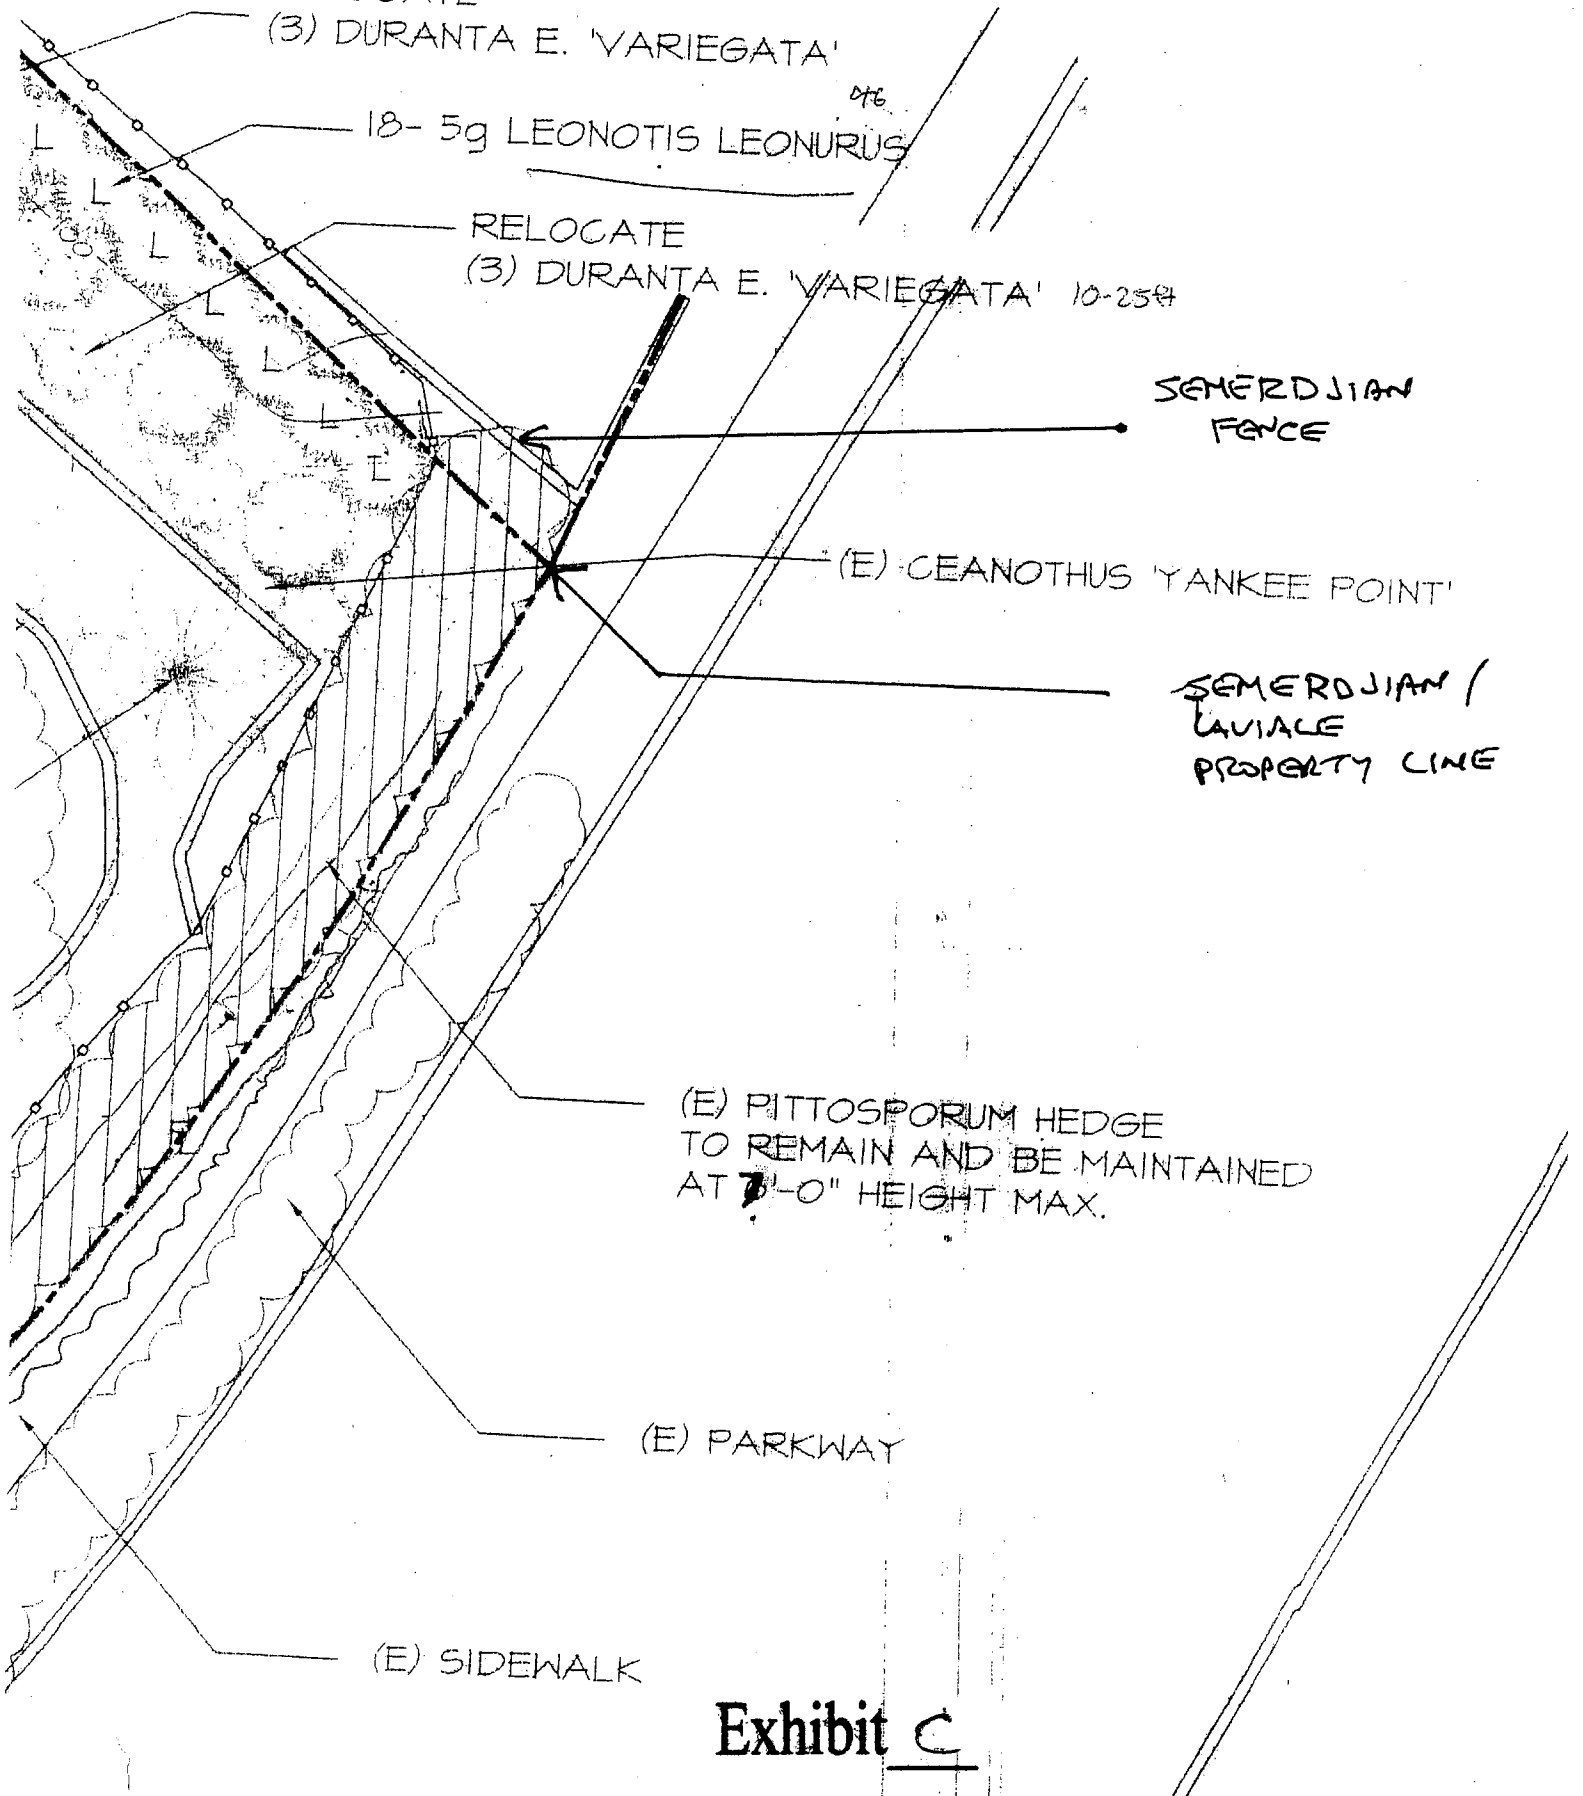 (3) DURANTA E. 'VARIEGATA'
18- 5g LEONOTIS LEONURUS
RELOCATE
(3) DURANTA E. 'VARIEGATA' 10-25ft
SEMERDJIAN
FENCE
(E) CEANOTHUS 'YANKEE POINT'
SEMERDJIAN /
LAVIALE
PROPERTY LINE
(E) PITTOSPORUM HEDGE
TO REMAIN AND BE MAINTAINED
AT 7'-0" HEIGHT MAX.
(E) PARKWAY
(E) SIDEWALK
Exhibit C
L
L
L
L
L
L
L